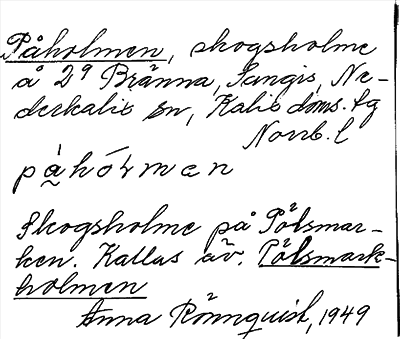 Påholmen, skogsholme
å 2⁹ Bränna, Sangis, Ne-
derkalix sn, Kalix doms. tg
Norrb. l
Skogsholme på Pölsmar-
ken. Kallas äv. Pölsmark-
holmen
Anna Rönnquist, 1949